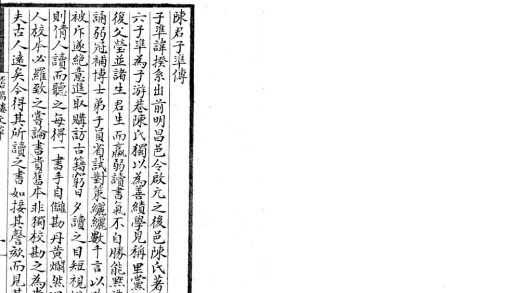 陳君子準傳
子準諱揆系出前明昌邑令啟元之後邑陳氏著
六子準為子游巷陳氏獨以為善績學見稱里黨
復父瑩並諸生君生而羸弱讀書氣不自勝能黙
誦弱冠補博士弟子員省試對策纚纚數千言以
被斥遂絕意進取購訪古籍窮日夕讀之目短視
則倩人讀而聽之每得一書手自讎勘丹黃爛然
人校本必羅致之嘗論書貴舊本非獨校勘之為
夫古人遠矣今得其所讀之書如接其謦欬而見其